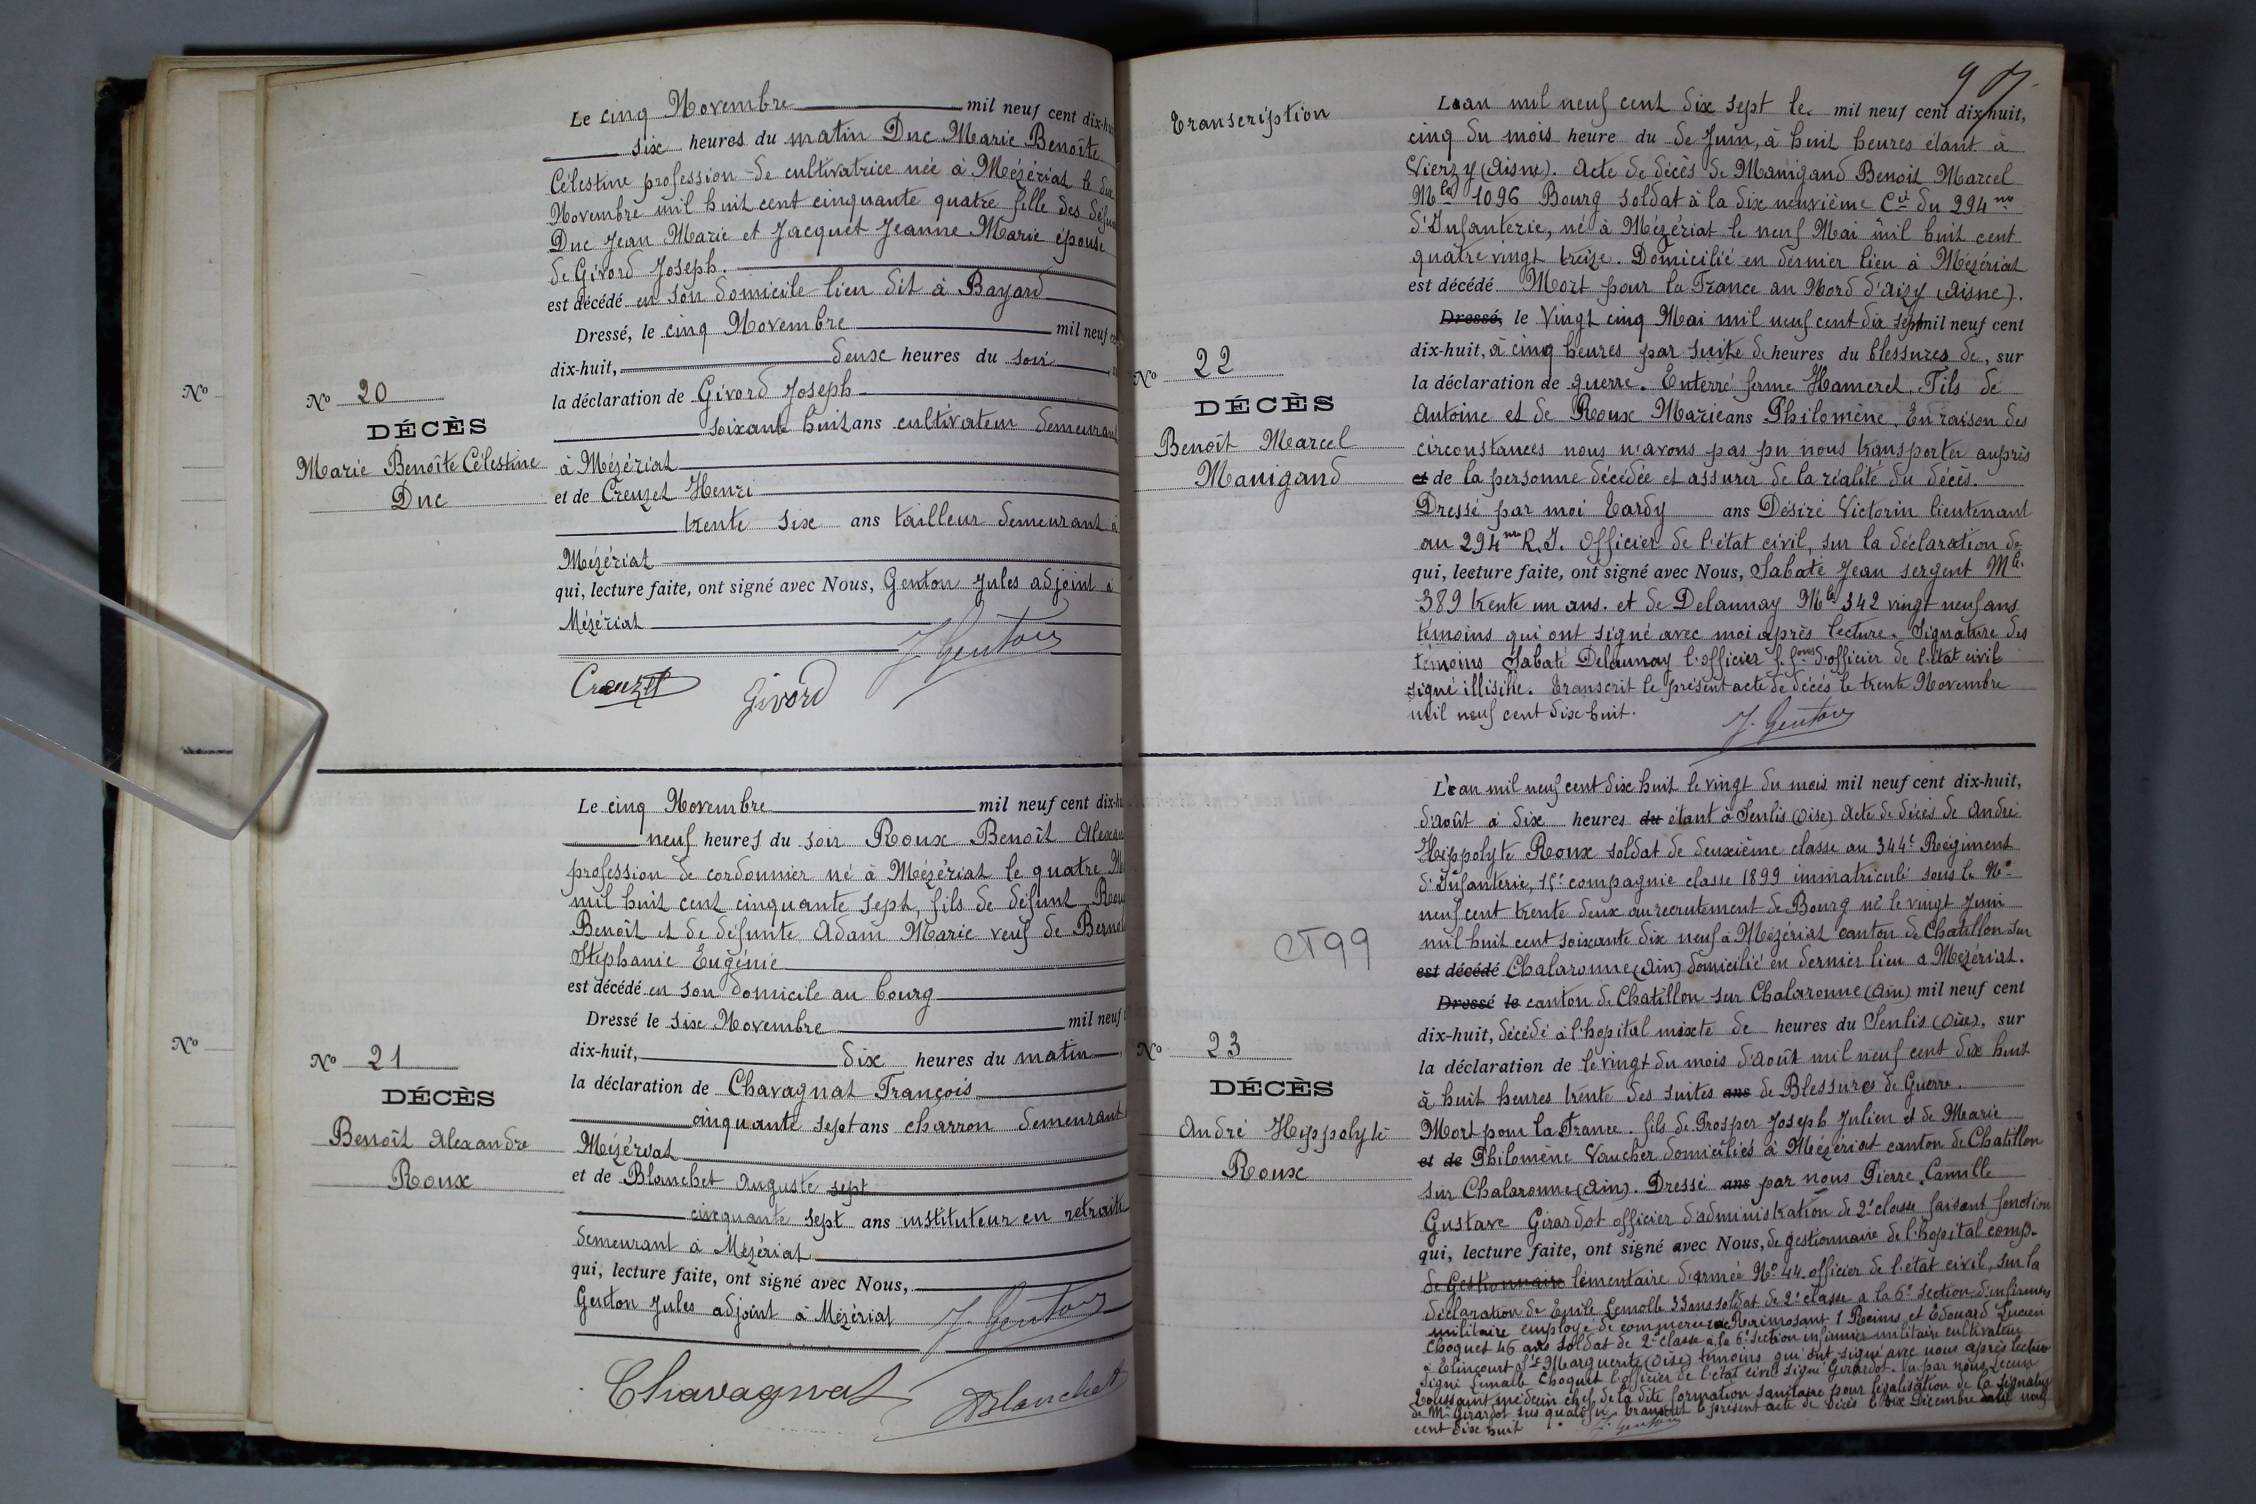 Le cinq Novembre mil neuf cent dix-hu
six heures du matin Duc Marie Benoîte
Célestine profession de cultivatrice née à Mézériat le dix
Novembre mil huit cent cinquante quatre fille des défun
Duc Jean Marie et Jacquet Jeanne Marie épouse
de Givord Joseph.
est décédé en son domicile lieu dit à Bayard
Dressé, le cinq Novembre mil neuf ce
dix-huit, deux heures du soir
la déclaration de Givord Joseph
soixante huit ans cultivateur demeurant
à Mézériat
et de Creuzet Henri
trente six ans tailleur demeurant à
Mézériat
qui, lecture faite, ont signé avec Nous, Genton Jules adjoint à
Mézériat
J. Genton
Creuzet Givord
Nº 20
DÉCÈS
Marie Benoîte Célestine
Duc
Le cinq Novembre mil neuf cent dix-hu
neuf heures du soir Roux Benoît Alexan
profession de cordonnier né à Mézériat le quatre M
mil huit cent cinquante sept, fils de défunt Roux
Benoît et de défunte Adam Marie veuf de
Stéphanie Eugénie
est décédé en son domicile au bourg
Dressé le six Novembre mil neuf c
dix-huit, dix heures du matin
la déclaration de Chavagnat François
cinquante sept ans charron demeurant
Mézériat
et de Blanchet Auguste sept
cinquante sept ans instituteur en retraite
demeurant à Mézériat
qui, lecture faite, ont signé avec Nous,
Genton Jules adjoint à Mézériat J. Genton
Chavagnat Blanchet
Nº 21
DÉCÈS
Benoît Alexandre
Roux
Nº
Nº
97
Transcription
L'an mil neuf cent dix sept le mil neuf cent dix-huit,
cinq du mois heure du de Juin, à huit heures étant à
Vierzy (Aisne). Acte de décès de Manigand Benoit Marcel
Mle 1096 Bourg soldat à la dix neuvième Cie du 294me
d'Infanterie, né à Mézériat le neuf Mai mil huit cent
quatre vingt treize. Domicilié en dernier lieu à Mézériat
est décédé Mort pour la France au Nord d'Aizy (Aisne).
Dressé, le Vingt cinq Mai mil neuf cent dix sept mil neuf cent
dix-huit, à cinq heures par suite de heures du blessures de, sur
la déclaration de guerre. Enterré ferme Hameret. Fils de
Antoine et de Roux Marie ans Philomène. En raison des
circonstances nous n'avons pas pu nous transporter auprès
et de la personne décédée et assurer de la réalité du décès.
Dressé par moi Tardy ans Désiré Victorin lieutenant
au 294me R.I. Officier de l'état civil, sur la déclaration de
qui, lecture faite, ont signé avec Nous, Sabaté Jean sergent Mle
389 trente un ans. et de Delaunay Mle 342 vingt neuf ans
témoins qui ont signé avec moi après lecture. Signature des
témoins Sabaté Delaunay l'officier f. fons d'officier de l'état civil
signé illisible. Transcrit le présent acte de décès le trente Novembre
mil neuf cent dix huit. J. Genton
Nº 22
DÉCÈS
Benoît Marcel
Manigand
L'an mil neuf cent dix huit le vingt du mois mil neuf cent dix-huit,
d'août à dix heures du étant à Senlis (Oise) Acte de décès de André
Hippolyte Roux soldat de deuxième classe au 344e Régiment
d'Infanterie, 15e compagnie classe 1899 immatriculé sous le Nº
neuf cent trente deux au recrutement de Bourg né le vingt Juin
mil huit cent soixante dix neuf à Mézériat canton de Chatillon sur
est décédé Chalaronne (Ain) domicilié en dernier lieu à Mézériat.
Dressé le canton de Chatillon sur Chalaronne (Ain) mil neuf cent
dix-huit, décédé à l'hopital mixte de heures du Senlis (Oise), sur
la déclaration de le vingt du mois d'août mil neuf cent dix huit
à huit heures trente des suites ans de Blessures de Guerre.
Mort pour la France. fils de Prosper Joseph Julien et de Marie
et de Philomène Vaucher domiciliés à Mézériat canton de Chatillon
sur Chalaronne (Ain). Dressé ans par nous Pierre Camille
Gustave Girardot officier d'administration de 2e classe faisant fonction
qui, lecture faite, ont signé avec Nous, de gestionnaire de l'hopital comp-
de Gestionnaire lémentaire d'armée Nº 44 officier de l'état civil, sur la
déclaration de Emile Lemolle 33 ans soldat de 2e classe a la 6e section d'infirmiers
militaire employé de commerce 1 Reims et Edouard Lucien
Choquet 46 ans soldat de 2e classe à la 6e section infirmier militaire cultivateur
à Elincourt Ste Marguerite (Oise) témoins qui ont signé avec nous après lecture
signé Choquet l'officier de l'état civil signé Girardot. Vu par nous
Toussaint médecin chef de la dite formation sanitaire pour légalisation de la signature
de Mr Girardot sus qualifié. transcrit le présent acte de décès le dix Décembre mil neuf
cent dix huit J. Genton
CT99
Nº 23
DÉCÈS
André Hippolyte
Roux